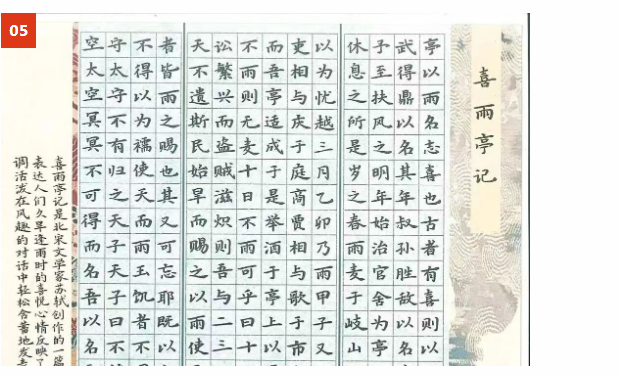 05
喜雨亭记
亭以雨名志喜也古者有喜则以
武得鼎以名其年叔孙胜敌以名
予至扶风之明年始治官舍为亭
休息之所是岁之春雨麦于岐山
以为忧越三月乙卯乃雨甲子又
吏相与庆于庭商贾相与歌于市
而吾亭适成于是举酒于亭上以
不雨则无麦十日不雨可乎曰十
讼繁兴而盗贼滋炽则吾与二三
天不遗斯民始旱而赐之以雨使
者皆雨之赐也其又可忘耶既以
不得以为襦使天而雨玉饥者不
守太守不有归之天子天子曰不
空太空冥冥不可得而名吾以名
喜雨亭记是北宋文学家苏轼创作的一篇
表达人们久旱逢雨时的喜悦心情反映了
调活泼在风趣的对话中轻松含蓄地发